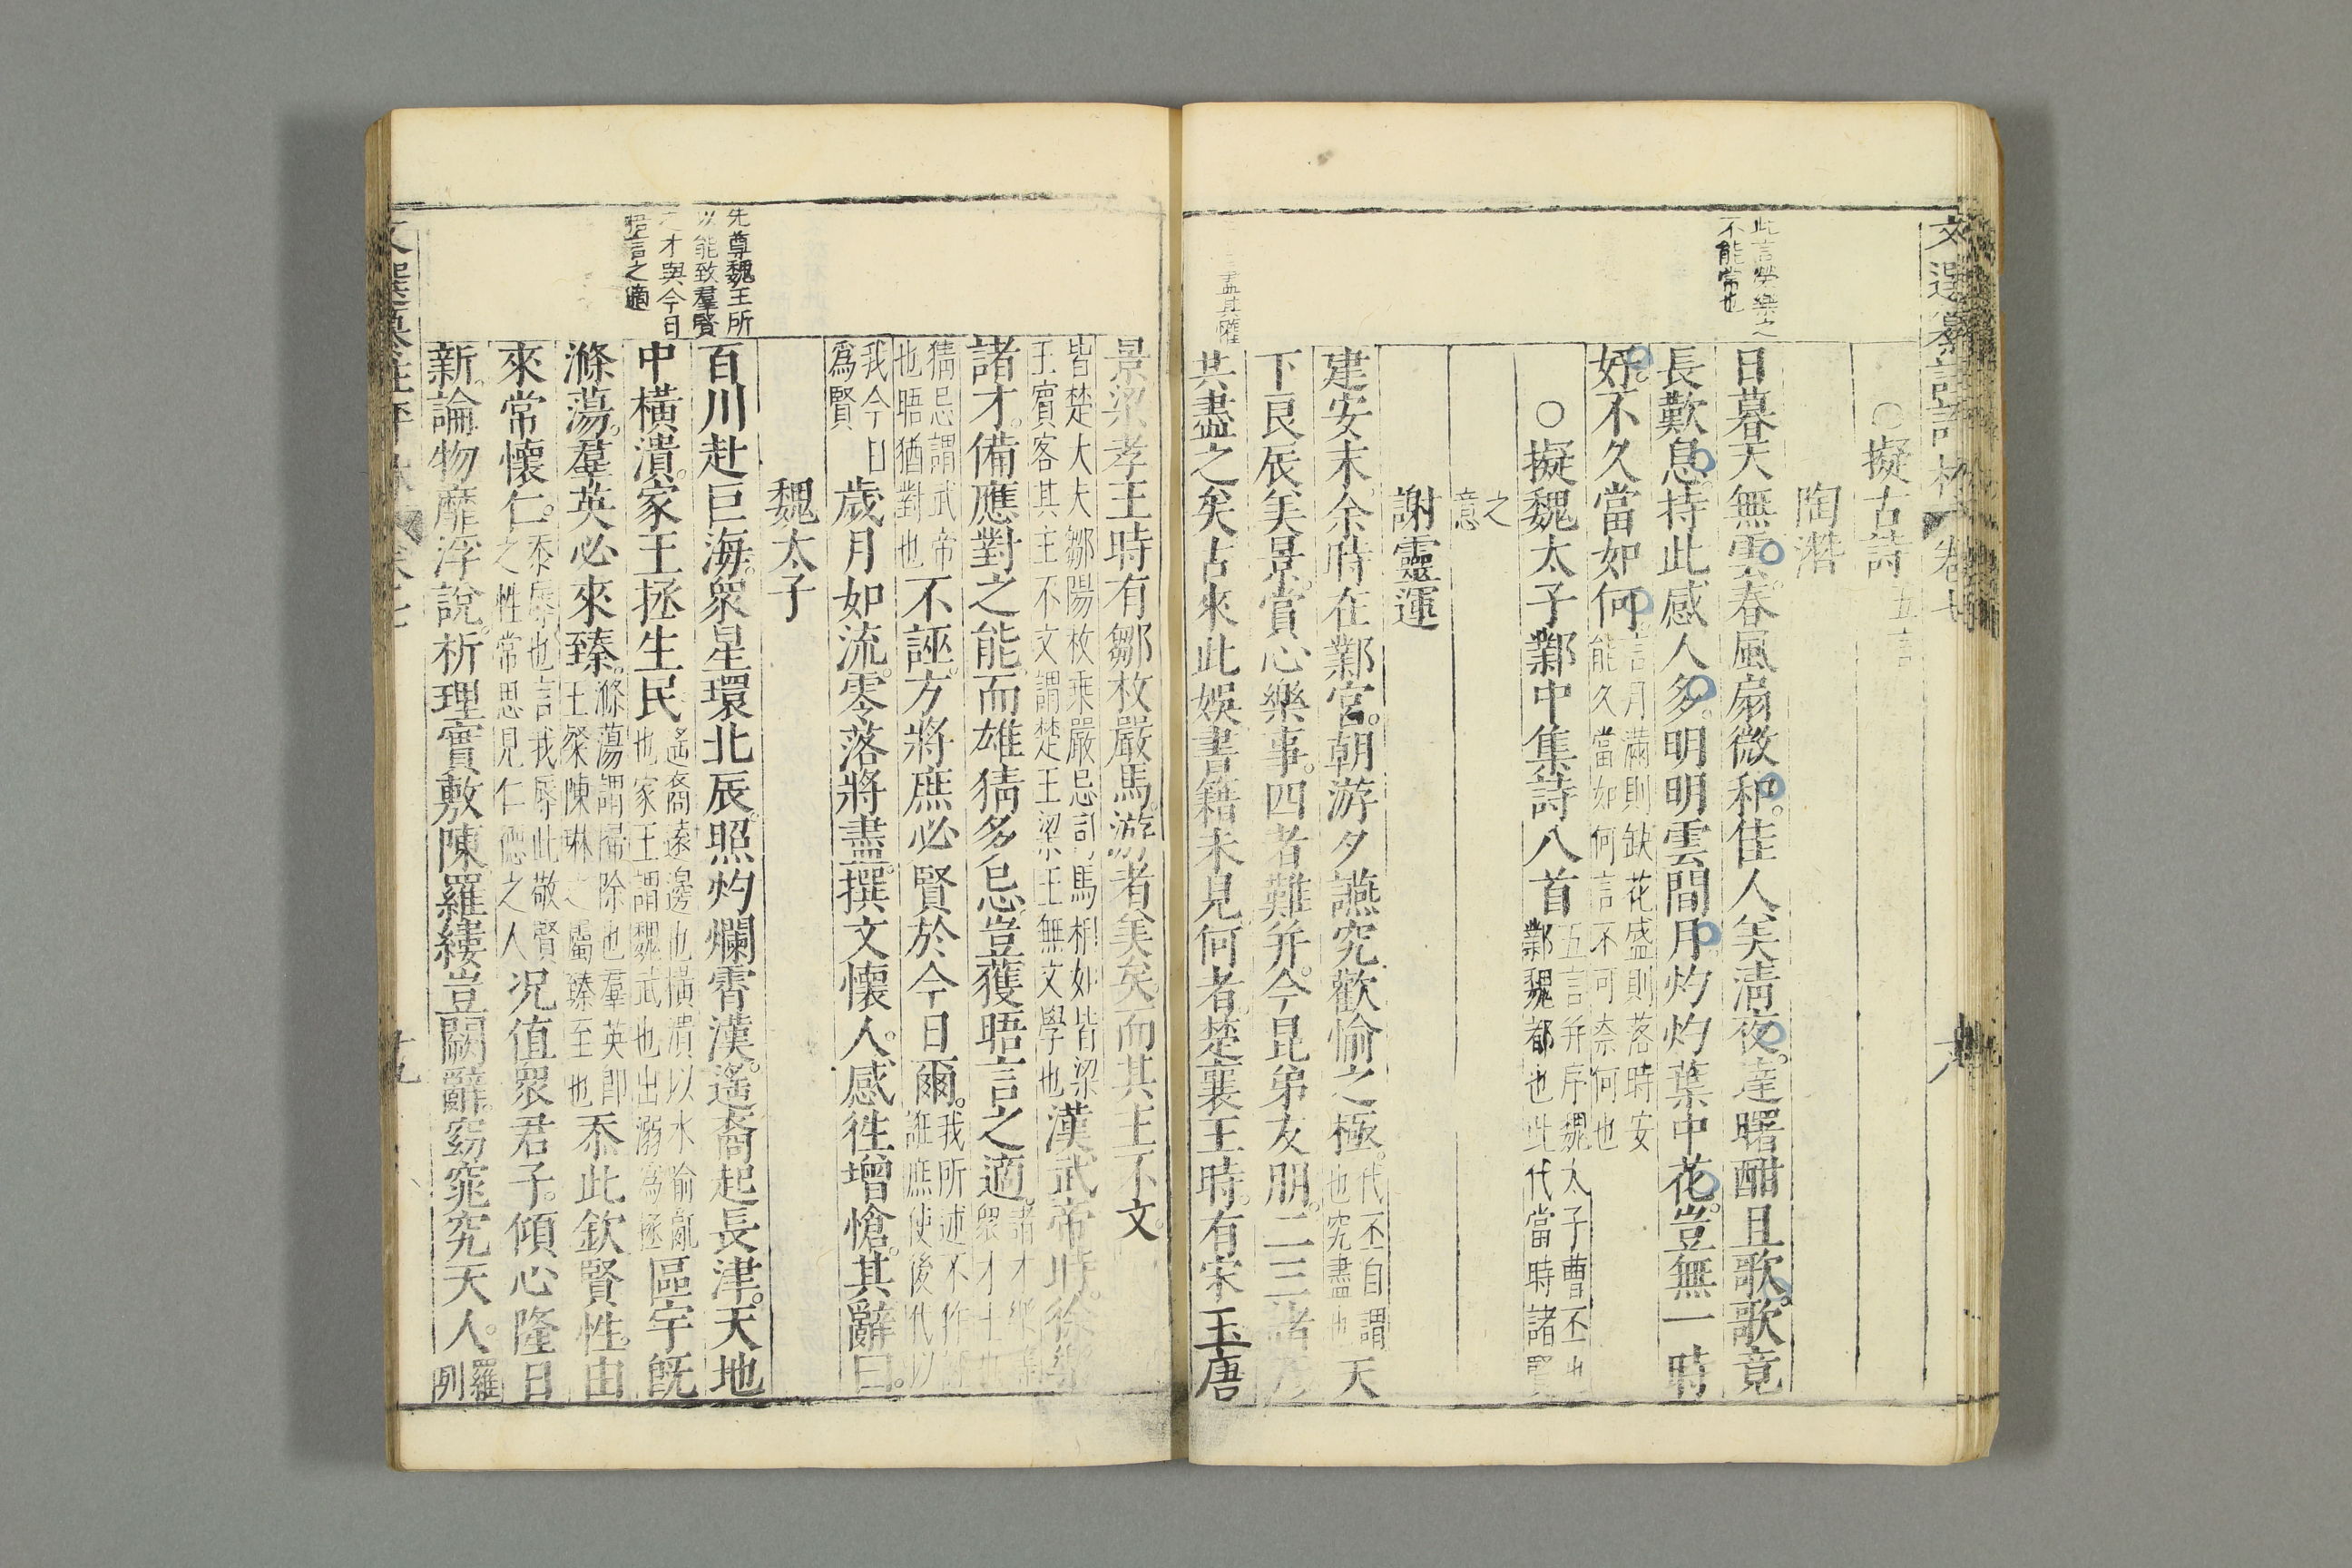 此言榮樂之
不能常也
盡其懽
○擬古詩五言
陶潛
日暮天無雲。春風扇微和。佳人美淸夜。達曙酣且歌。歌竟
長歎息。持此感人多。明明雲間月。灼灼葉中花。豈無一時
好。不久當如何。言月滿則缺花盛則落時安
能久當如何言不可奈何也
○擬魏太子鄴中集詩八首五言并序魏太子曹丕也
鄴魏都也此代當時諸賢
之
意
謝靈運
建安末。余時在鄴宮。朝游夕讌。究歡愉之極。代丕自謂
也究盡也
天
下良辰美景。賞心樂事。四者難并。今昆弟友朋。二三諸
其盡之矣。古來此娛。書籍未見。何者。楚襄王時。有宋玉唐
先尊魏王所
以能致羣賢
之才與今日
晤言之適
景。梁孝王時有鄒枚嚴馬。游者美矣。而其主不文。
皆楚大夫鄒陽枚乘嚴忌司馬相如皆梁
王賓客其主不文謂楚王梁王無文學也
漢武帝時。徐樂
諸才。備應對之能。而雄猜多忌。豈獲晤言之適。諸才
衆才士也
猜忌謂武帝
也晤猶對也
不誣。方將庶必賢於今日爾。我所述不作
誑庶使後代以
我今日
爲賢
歲月如流。零落將盡。撰文懷人。感徃增愴。其辭曰。
魏太子
百川赴巨海。衆星環北辰。照灼爛霄漢。遙裔起長津。天地
中橫潰。家王拯生民遙裔遠邊也橫潰以水喻亂
也家王謂魏武也出溺爲拯
區宇旣
滌蕩。羣英必來臻。滌蕩謂掃除也羣英卽
王粲陳琳之屬臻至也
忝此欽賢性。由
來常懷仁。忝辱也言我辱此敬賢
之性常思見仁德之人
况值衆君子。傾心隆日
新。論物靡浮說。析理實敷陳。羅縷豈闕辭。窈窕究天人。羅
列